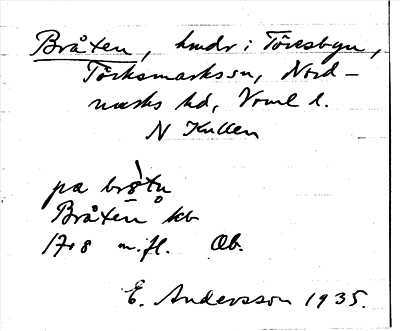 Bråten, hmdr i Töresbyn,
Torrskmarks sn, Nord-
marks hd, Vrml l.
N Kullen
pa brötn
Bråten kb
1708 m.fl. Ob.
E. Andersson 1935.